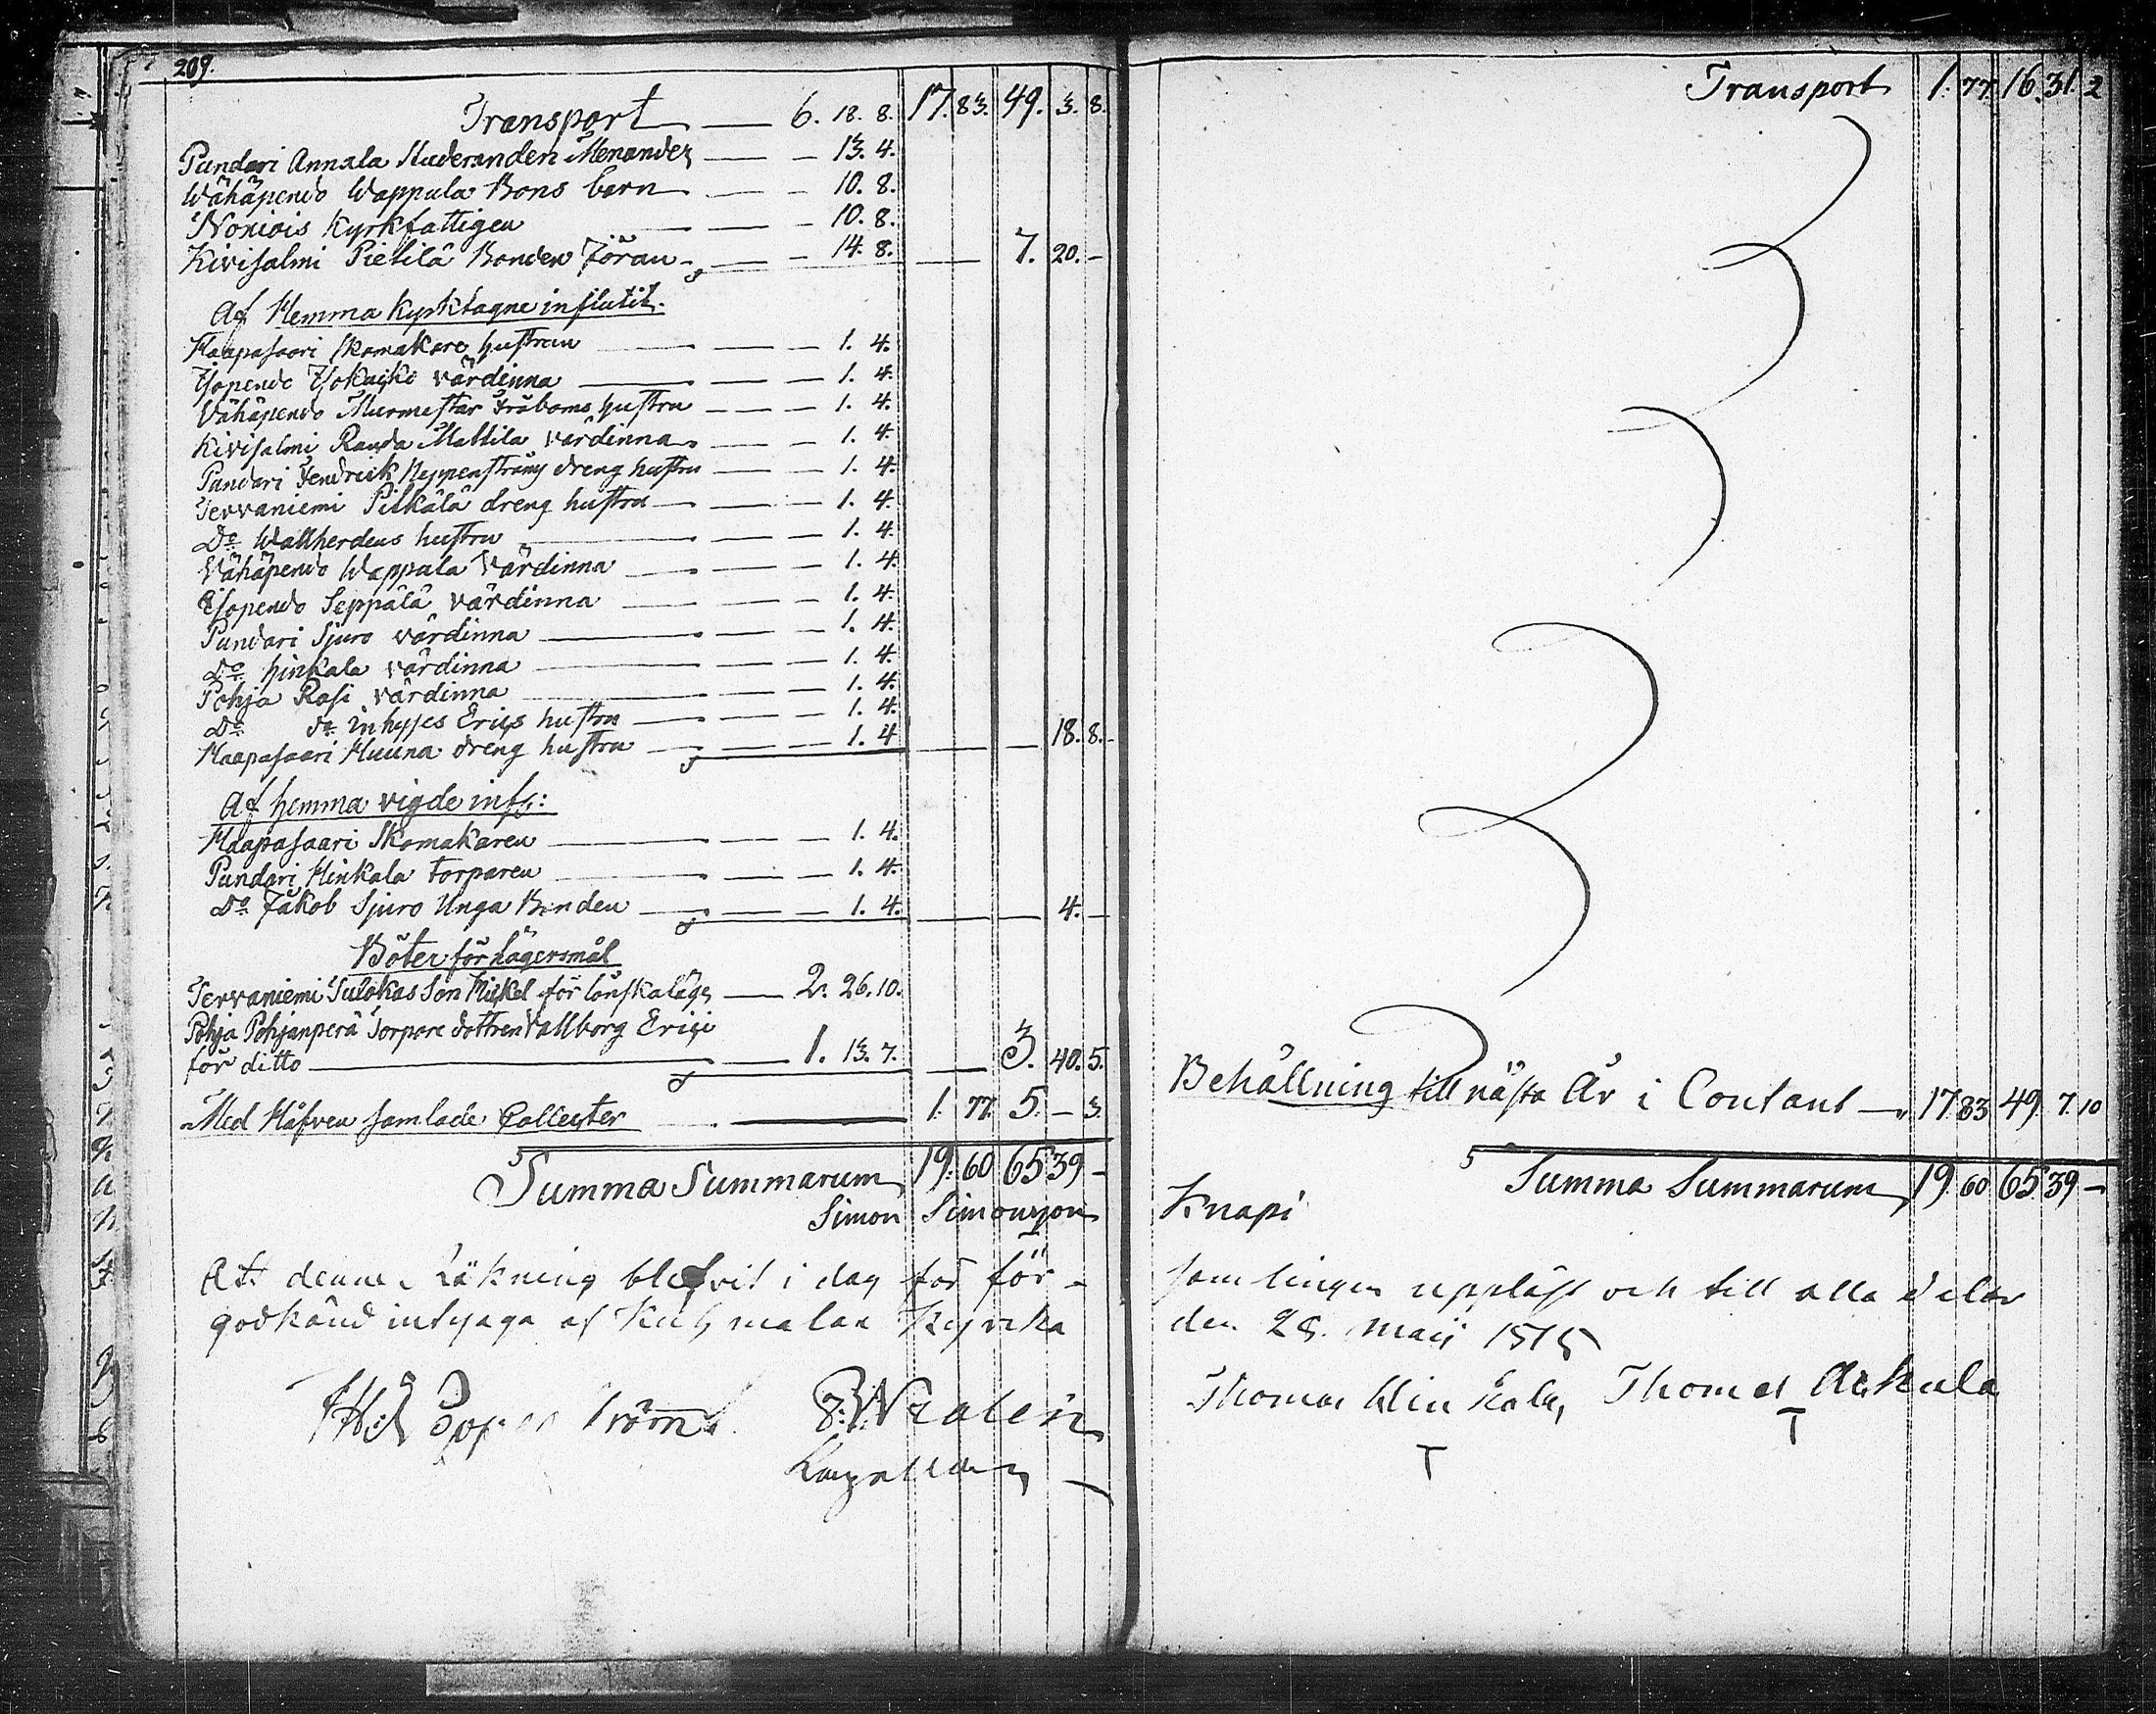 209.
Transport 6. 18. 8. 17. 83. 49. 3. 8.
Pundari Annala Studeranden Menander 13. 4.
Wähäpendo Wappula Bons barn 10. 8.
Noniois Kyrkfattigen 10. 8.
Kivisalmi Pietilä Bonden Jöran 14. 8. 7. 20. -
Af Hemma Kyrktagne influtit.
Haapasaari Skomakare hustrun 1. 4.
Isopendo värdinna 1. 4.
Vähäpendo Murmestar hustru 1. 4.
Kivisalmi Rauda Mattila värdinna 1. 4.
Pundari dreng hustru 1. 4.
Tervaniemi Pitkälä dreng hustru 1. 4.
Do Wallherdens hustru 1. 4.
Vähäpendo Wappula Värdinna 1. 4.
Isopendo Seppälä värdinna 1. 4.
Pundari Sjuro värdinna 1. 4.
Do Hinkala värdinna 1. 4.
Pohja Rasi värdinna 1. 4.
Do do inhyses Erics hustru 1. 4.
Haapasaari Huuna dreng hustru 1. 4 18. 8.
Af hemma vigde infl:
Haapasaari Skomakaren 1. 4.
Pundari Hinkala torparen 1. 4.
Do Jakob Sjuro Unga Bonden 1. 4. 4. -
Böter för Lägersmål
Tervaniemi Tulokas Son Mickel för lönskaläge 2. 26. 10.
Pohja Pohjanperä Torpare dottren Vallborg Erici
för ditto 1. 13. 7. 3. 40. 5.
Med Håfven samlade Collecter 1. 77. 5. - 3.
Summa Summarum 19. 60 65 39 -
Simon Simonsson
Att denne Räkning blefvit i dag för för-
godkänd intygga af Kuhmalax Kyrcka
Transport 1. 77. 16. 31. 2
Behållning till nästa År i Contant 17 83 49 7. 10
Summa Summarum 19 60 65 39 -
Knapi
samlingen uppläst och till alla delar
den 28. Maij 1815
Thomas Hinkala Thomas
T T